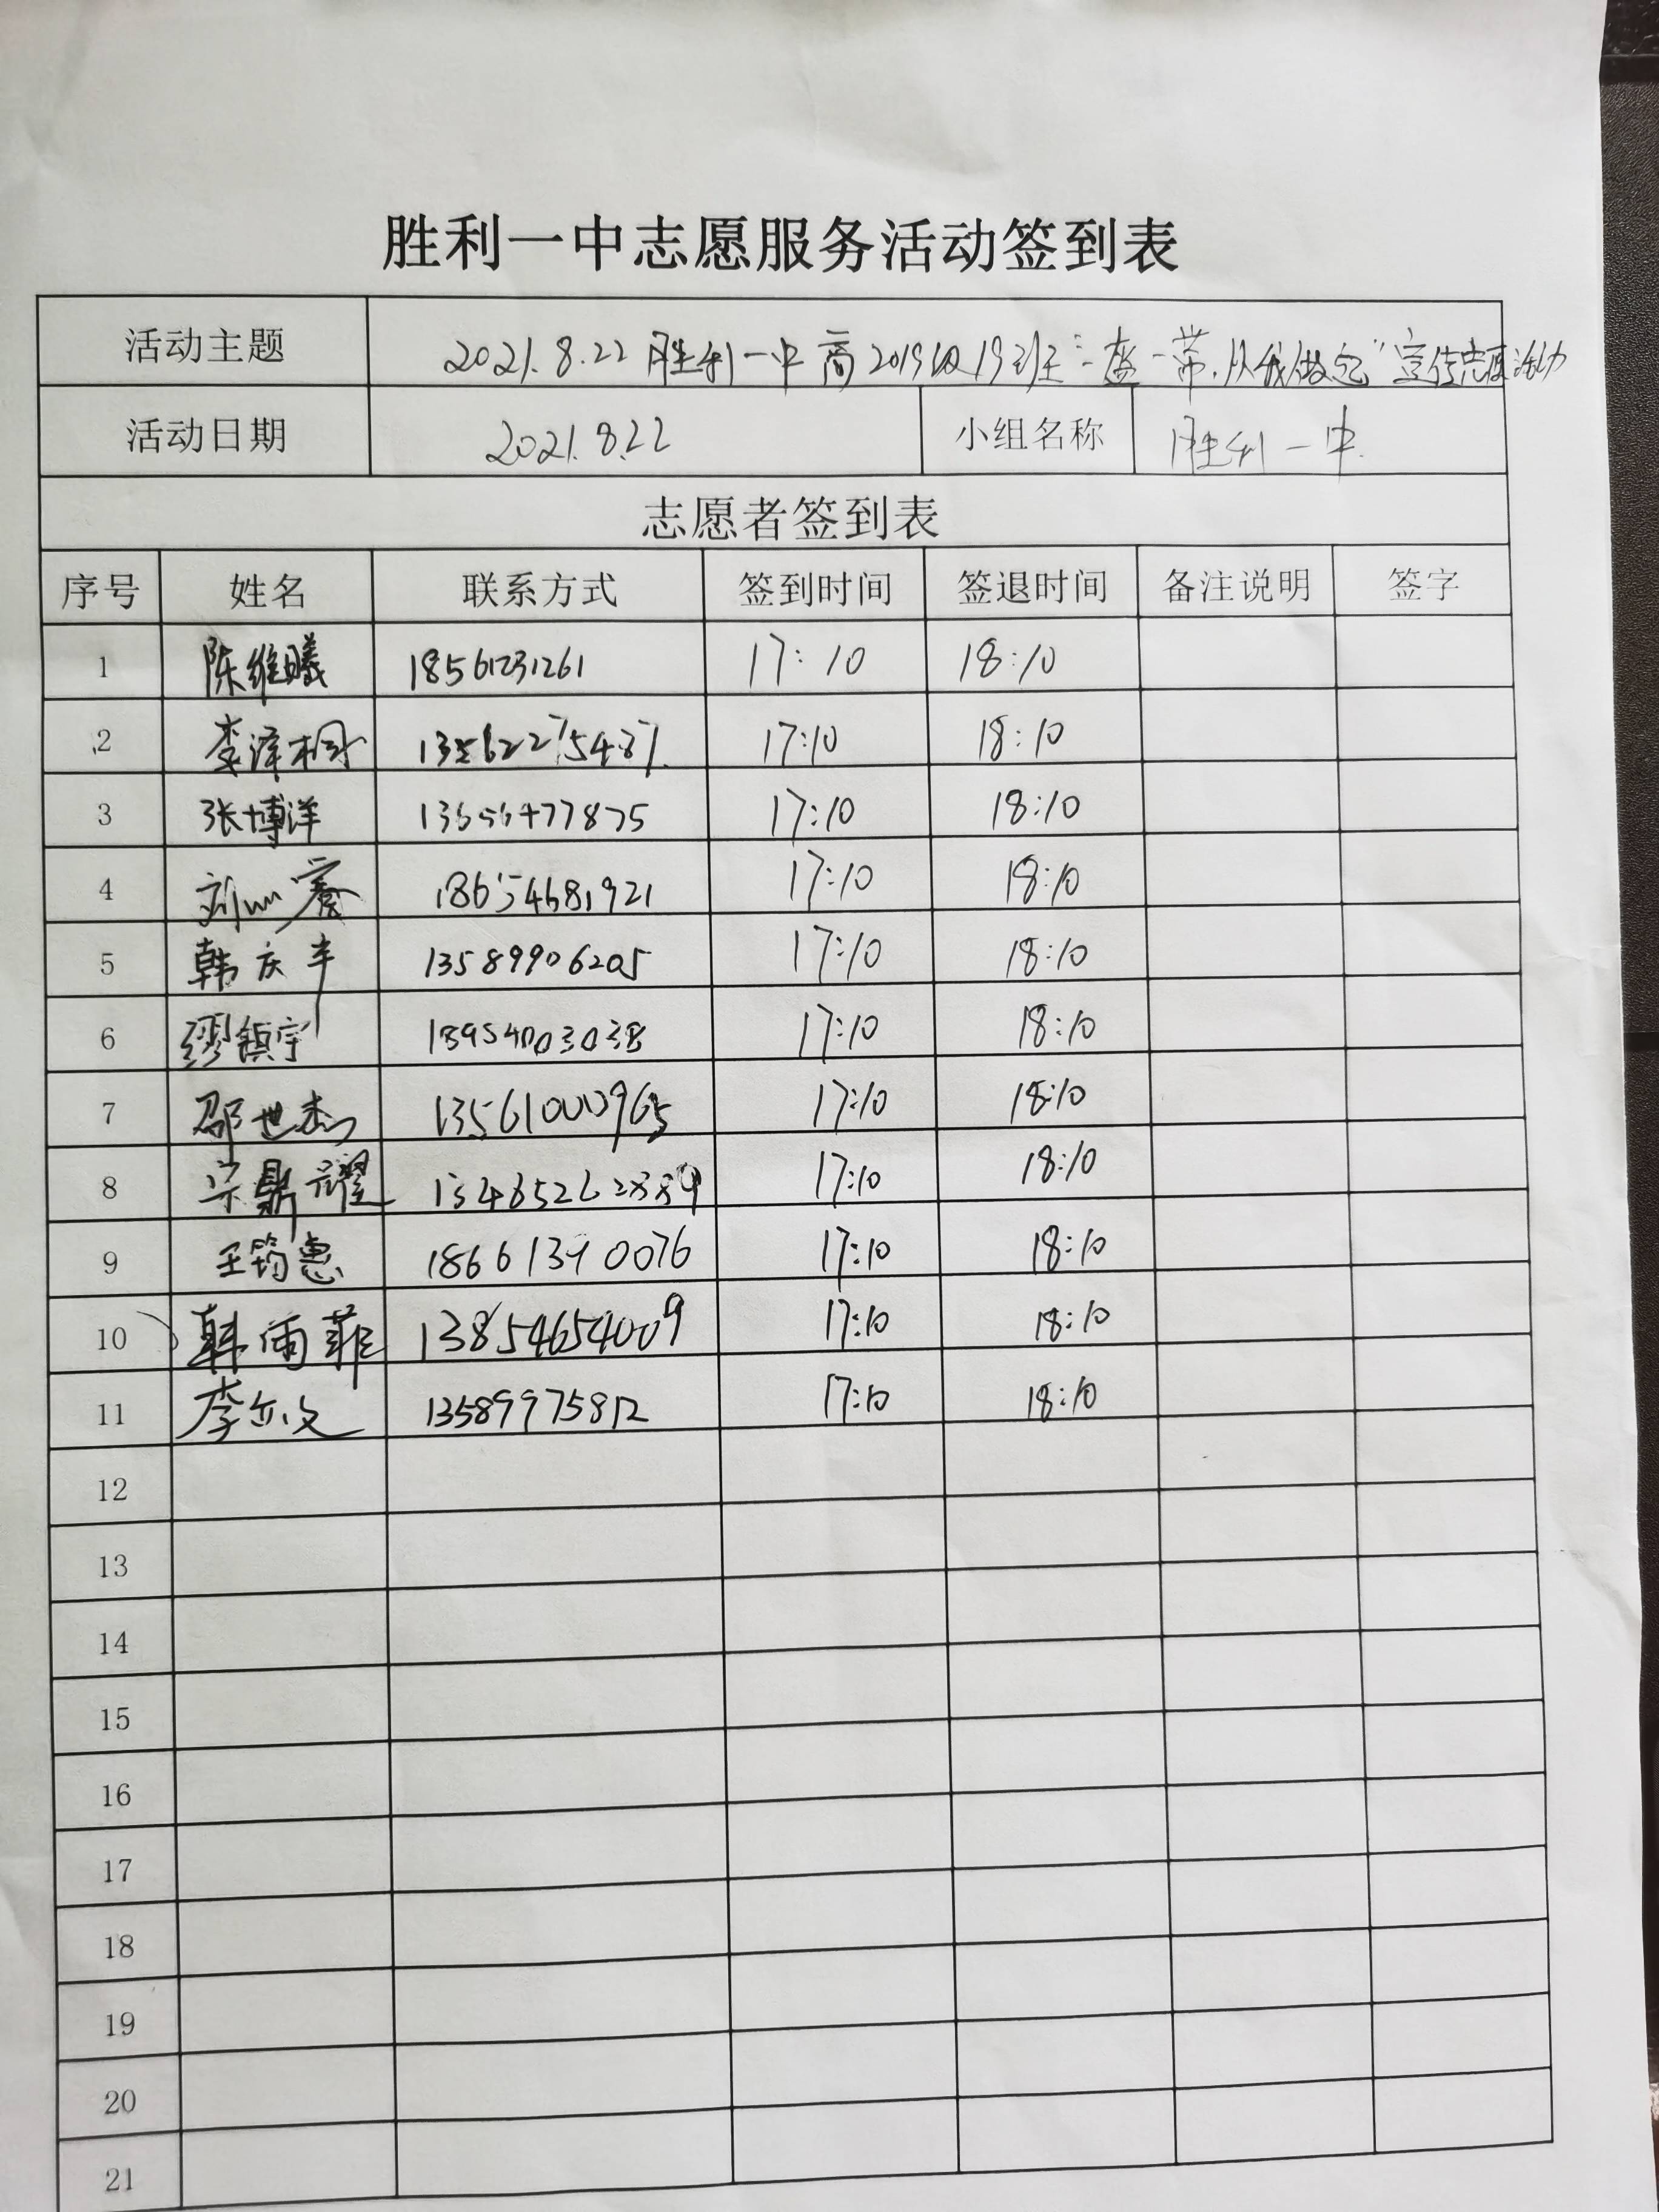 胜利一中志愿服务活动签到表
活动主题 2021.8.22 胜利一中高2019级19班"一盔一带,从我做起"宣传志愿活动
活动日期 2021.8.22 小组名称 胜利一中
志愿者签到表
序号 姓名 联系方式 签到时间 签退时间 备注说明 签字
1 陈维曦 18561231261 17:10 18:10
2 李泽桐 17:10 18:10
3 张博洋 17:10 18:10
4 刘 18654681921 17:10 18:10
5 韩庆丰 13589906205 17:10 18:10
6 缪镇宇 17:10 18:10
7 邵世杰 13561000965 17:10 18:10
8 宗鼎耀 17:10 18:10
9 王筠惠 18661390076 17:10 18:10
10 韩雨菲 13854654009 17:10 18:10
11 李 13589975812 17:10 18:10
12
13
14
15
16
17
18
19
20
21